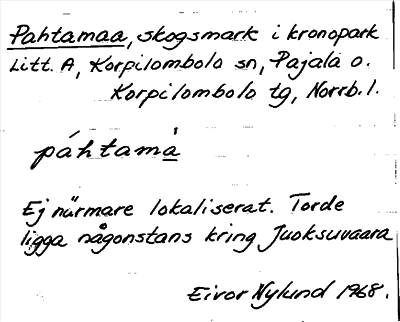 Pahtamaa, skogsmark i kronopark
Litt. A, Korpilombolo sn, Pajala o.
Korpilombolo tg, Norrb. l.
páhtamȧ̲
Ej närmare lokaliserat. Torde
ligga någonstans kring Juoksuvaara
Eivor Nylund 1968.